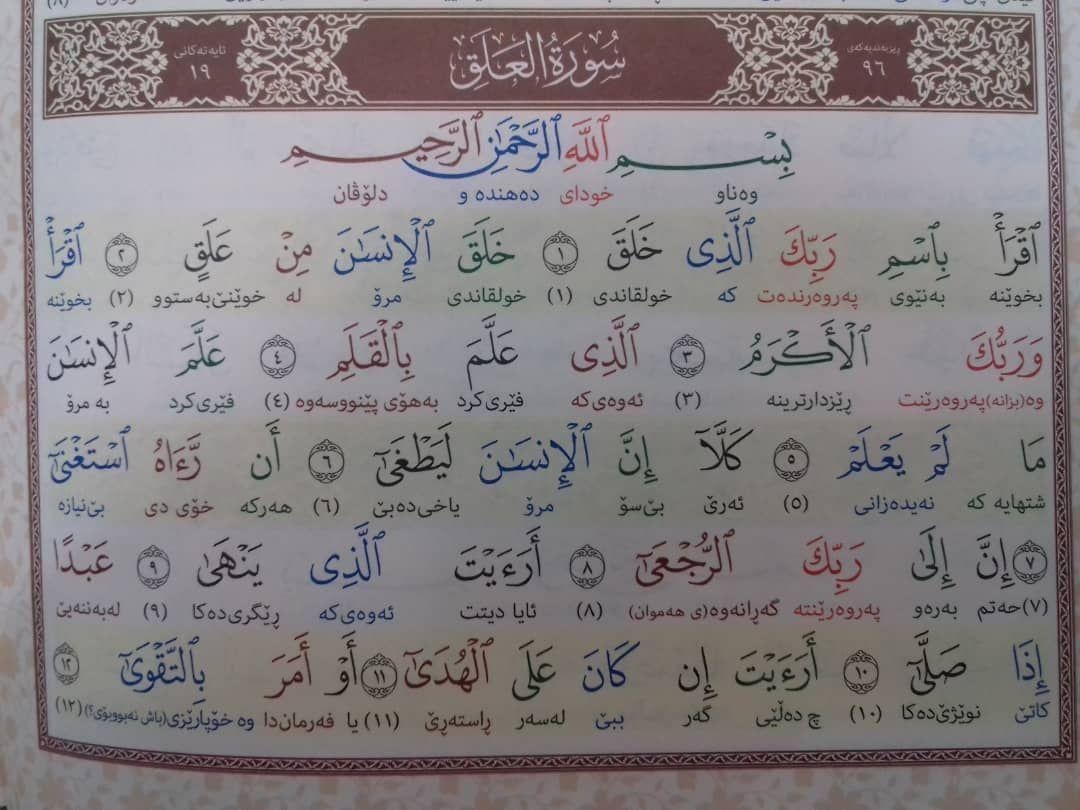 ئایەتەکانی ١٩ سُورَةُ العَلَق ڕیزبەندیەکەی ٩٦
بِسْمِ ٱللَّهِ ٱلرَّحْمَٰنِ ٱلرَّحِيمِ
وەناو خودای دەهندە و دلۆڤان
ٱقْرَأْ بِٱسْمِ رَبِّكَ ٱلَّذِى خَلَقَ ١ خَلَقَ ٱلْإِنسَٰنَ مِنْ عَلَقٍ ٢ ٱقْرَأْ
بخوێنە بەنێوی پەروەرندەت کە خولقاندی (١) خولقاندی مرۆ لە خوێنێ بەستوو (٢) بخوێنە
وَرَبُّكَ ٱلْأَكْرَمُ ٣ ٱلَّذِى عَلَّمَ بِٱلْقَلَمِ ٤ عَلَّمَ ٱلْإِنسَٰنَ
وە(بزانە)پەروەرێنت ڕێزدارترینە (٣) ئەوەی کە فێری کرد بەهۆی پێنووسەوە (٤) فێری کرد بە مرۆ
مَا لَمْ يَعْلَمْ ٥ كَلَّآ إِنَّ ٱلْإِنسَٰنَ لَيَطْغَىٰٓ ٦ أَن رَّءَاهُ ٱسْتَغْنَىٰٓ
شتهایە کە نەیدەزانی (٥) ئەرێ بێ سۆ مرۆ یاخی دەبێ (٦) هەرکە خۆی دی بێ نیازە
٧ إِنَّ إِلَىٰ رَبِّكَ ٱلرُّجْعَىٰٓ ٨ أَرَءَيْتَ ٱلَّذِى يَنْهَىٰ ٩ عَبْدًا
(٧) حەتم بەرەو پەروەرێنتە گەڕانەوە(ی هەموان) (٨) ئایا دیتت ئەوەی کە ڕێگری دەکا (٩) لەبەننەیێ
إِذَا صَلَّىٰٓ ١٠ أَرَءَيْتَ إِن كَانَ عَلَى ٱلْهُدَىٰٓ ١١ أَوْ أَمَرَ بِٱلتَّقْوَىٰٓ ١٢
کاتێ نوێژێ دەکا (١٠) چ دەڵێی گەر ببێ لەسەر ڕاستەڕێ (١١) یا فەرمان دا وە خۆپارێزی(باش نەبووبۆی؟) (١٢)